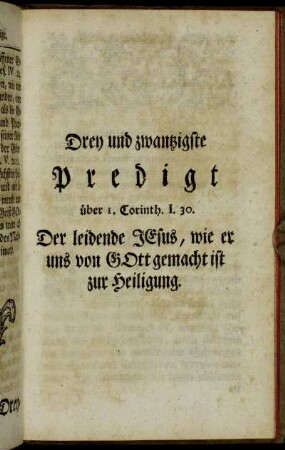 Drey und zwantzigste
Predigt
über 1. Corinth. I. 30.
Der leidende JEsus, wie er
uns von GOtt gemacht ist
zur Heiligung.
Drey